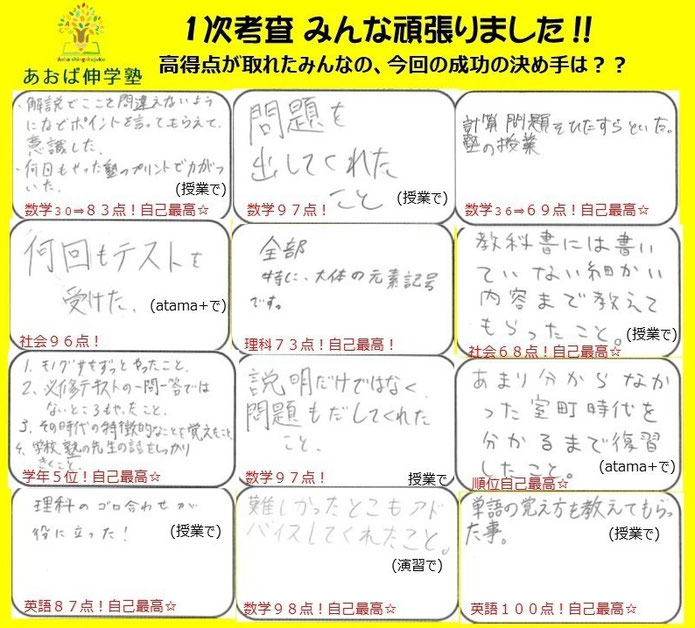 1次考査 みんな頑張りました!!
Aoba shingakujuku
あおば伸学塾
高得点が取れたみんなの、今回の成功の決め手は??
・解説でここを間違えないよう
になどポイントを言ってもらえて、
意識した。
・何回もやった塾のプリントで力がつ
いた。
(授業で)
数学30⇒83点!自己最高☆
問題を
出してくれた
こと
(授業で)
数学97点!自己最高☆
計算問題をひたすらといた。
塾の授業
数学36⇒69点!自己最高☆
何回もテストを
受けた。
(atama+で)
社会96点!
全部
特に、大体の元素記号
です。
理科73点!自己最高!
教科書には書い
ていない細かい
内容まで教えて
もらったこと。
(授業で)
社会68点!自己最高☆
1、モノグサをずっとやったこと、
2、必修テキストの一問一答では
ないところもやったこと、
3、その時代の特徴的なことを覚えたこと、
4、学校、塾の先生の話をしっかり
きくこと、
学年5位!自己最高☆
説明だけではなく、
問題もだしてくれた
こと、
数学97点!
授業で
あまり分からなか
った室町時代を
分かるまで復習
したこと。
(atama+で)
順位自己最高☆
理科のゴロ合わせが
役に立った!
(授業で)
英語87点!自己最高☆
難しかったとこもアド
バイスしてくれたこと。
(演習で)
数学98点!自己最高☆
単語の覚え方も教えてもらっ
た事。
(授業で)
英語100点!自己最高☆